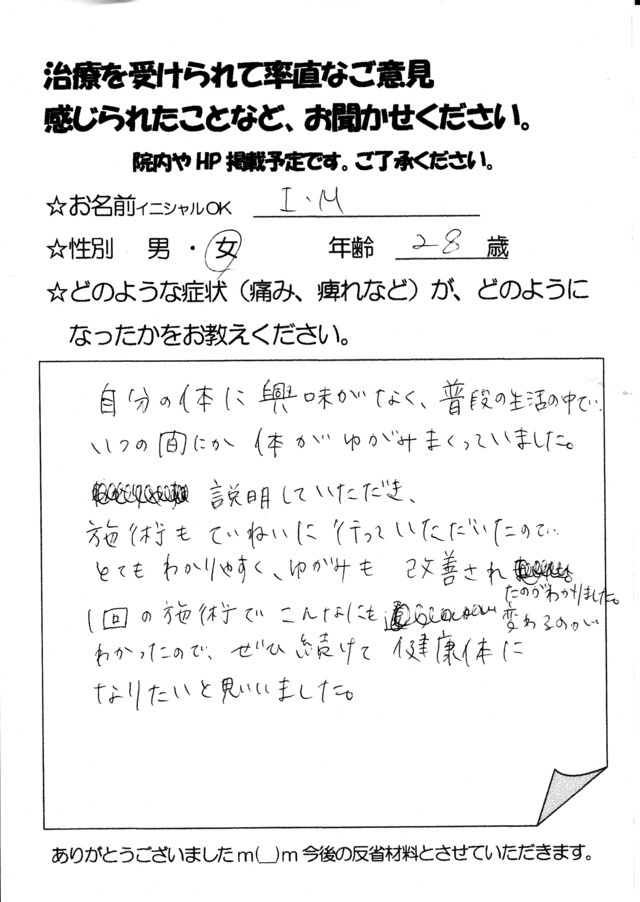 治療を受けられて率直なご意見
感じられたことなど、お聞かせください。
院内やHP掲載予定です。ご了承ください。
☆お名前イニシャルOK I・M
☆性別 男・女 年齢 28 歳
☆どのような症状（痛み、痺れなど）が、どのように
なったかをお教えください。
自分の体に興味がなく、普段の生活の中で…
いつの間にか体がゆがみまくっていました。
説明していただき、
施術もていねいに行っていただいたので…
とてもわかりやすく、ゆがみも改善され
たのがわかりました。
1回の施術でこんなにも変わるのが
わかったので、ぜひ続けて健康体に
なりたいと思いいました。
ありがとうございましたm(__)m今後の反省材料とさせていただきます。